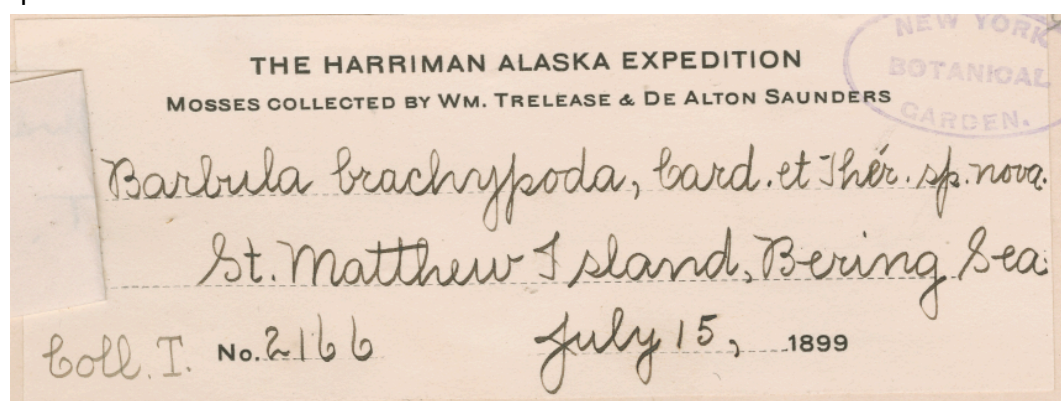 THE HARRIMAN ALASKA EXPEDITION
MOSSES COLLECTED BY WM. TRELEASE & DE ALTON SAUNDERS
NEW YORK
BOTANICAL
GARDEN.
Barbula brachypoda, Card. et Thér. sp. nova.
St. Matthew Island, Bering Sea
Coll. T. No. 2166 July 15, 1899